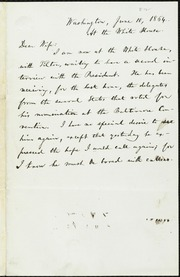 Washington, June 10, 1864.
At the White House
Dear Wife:
I am now at the White House,
with Tilton, waiting to have a second in-
terview with the President. He has been
receiving, for the last hour, the delegates
from the several States that voted for
his nomination at the Baltimore Con-
vention. I have no special desire to see
him again, except that yesterday he ex-
pressed the hope I would call again; for
I know he must be bored with callers.